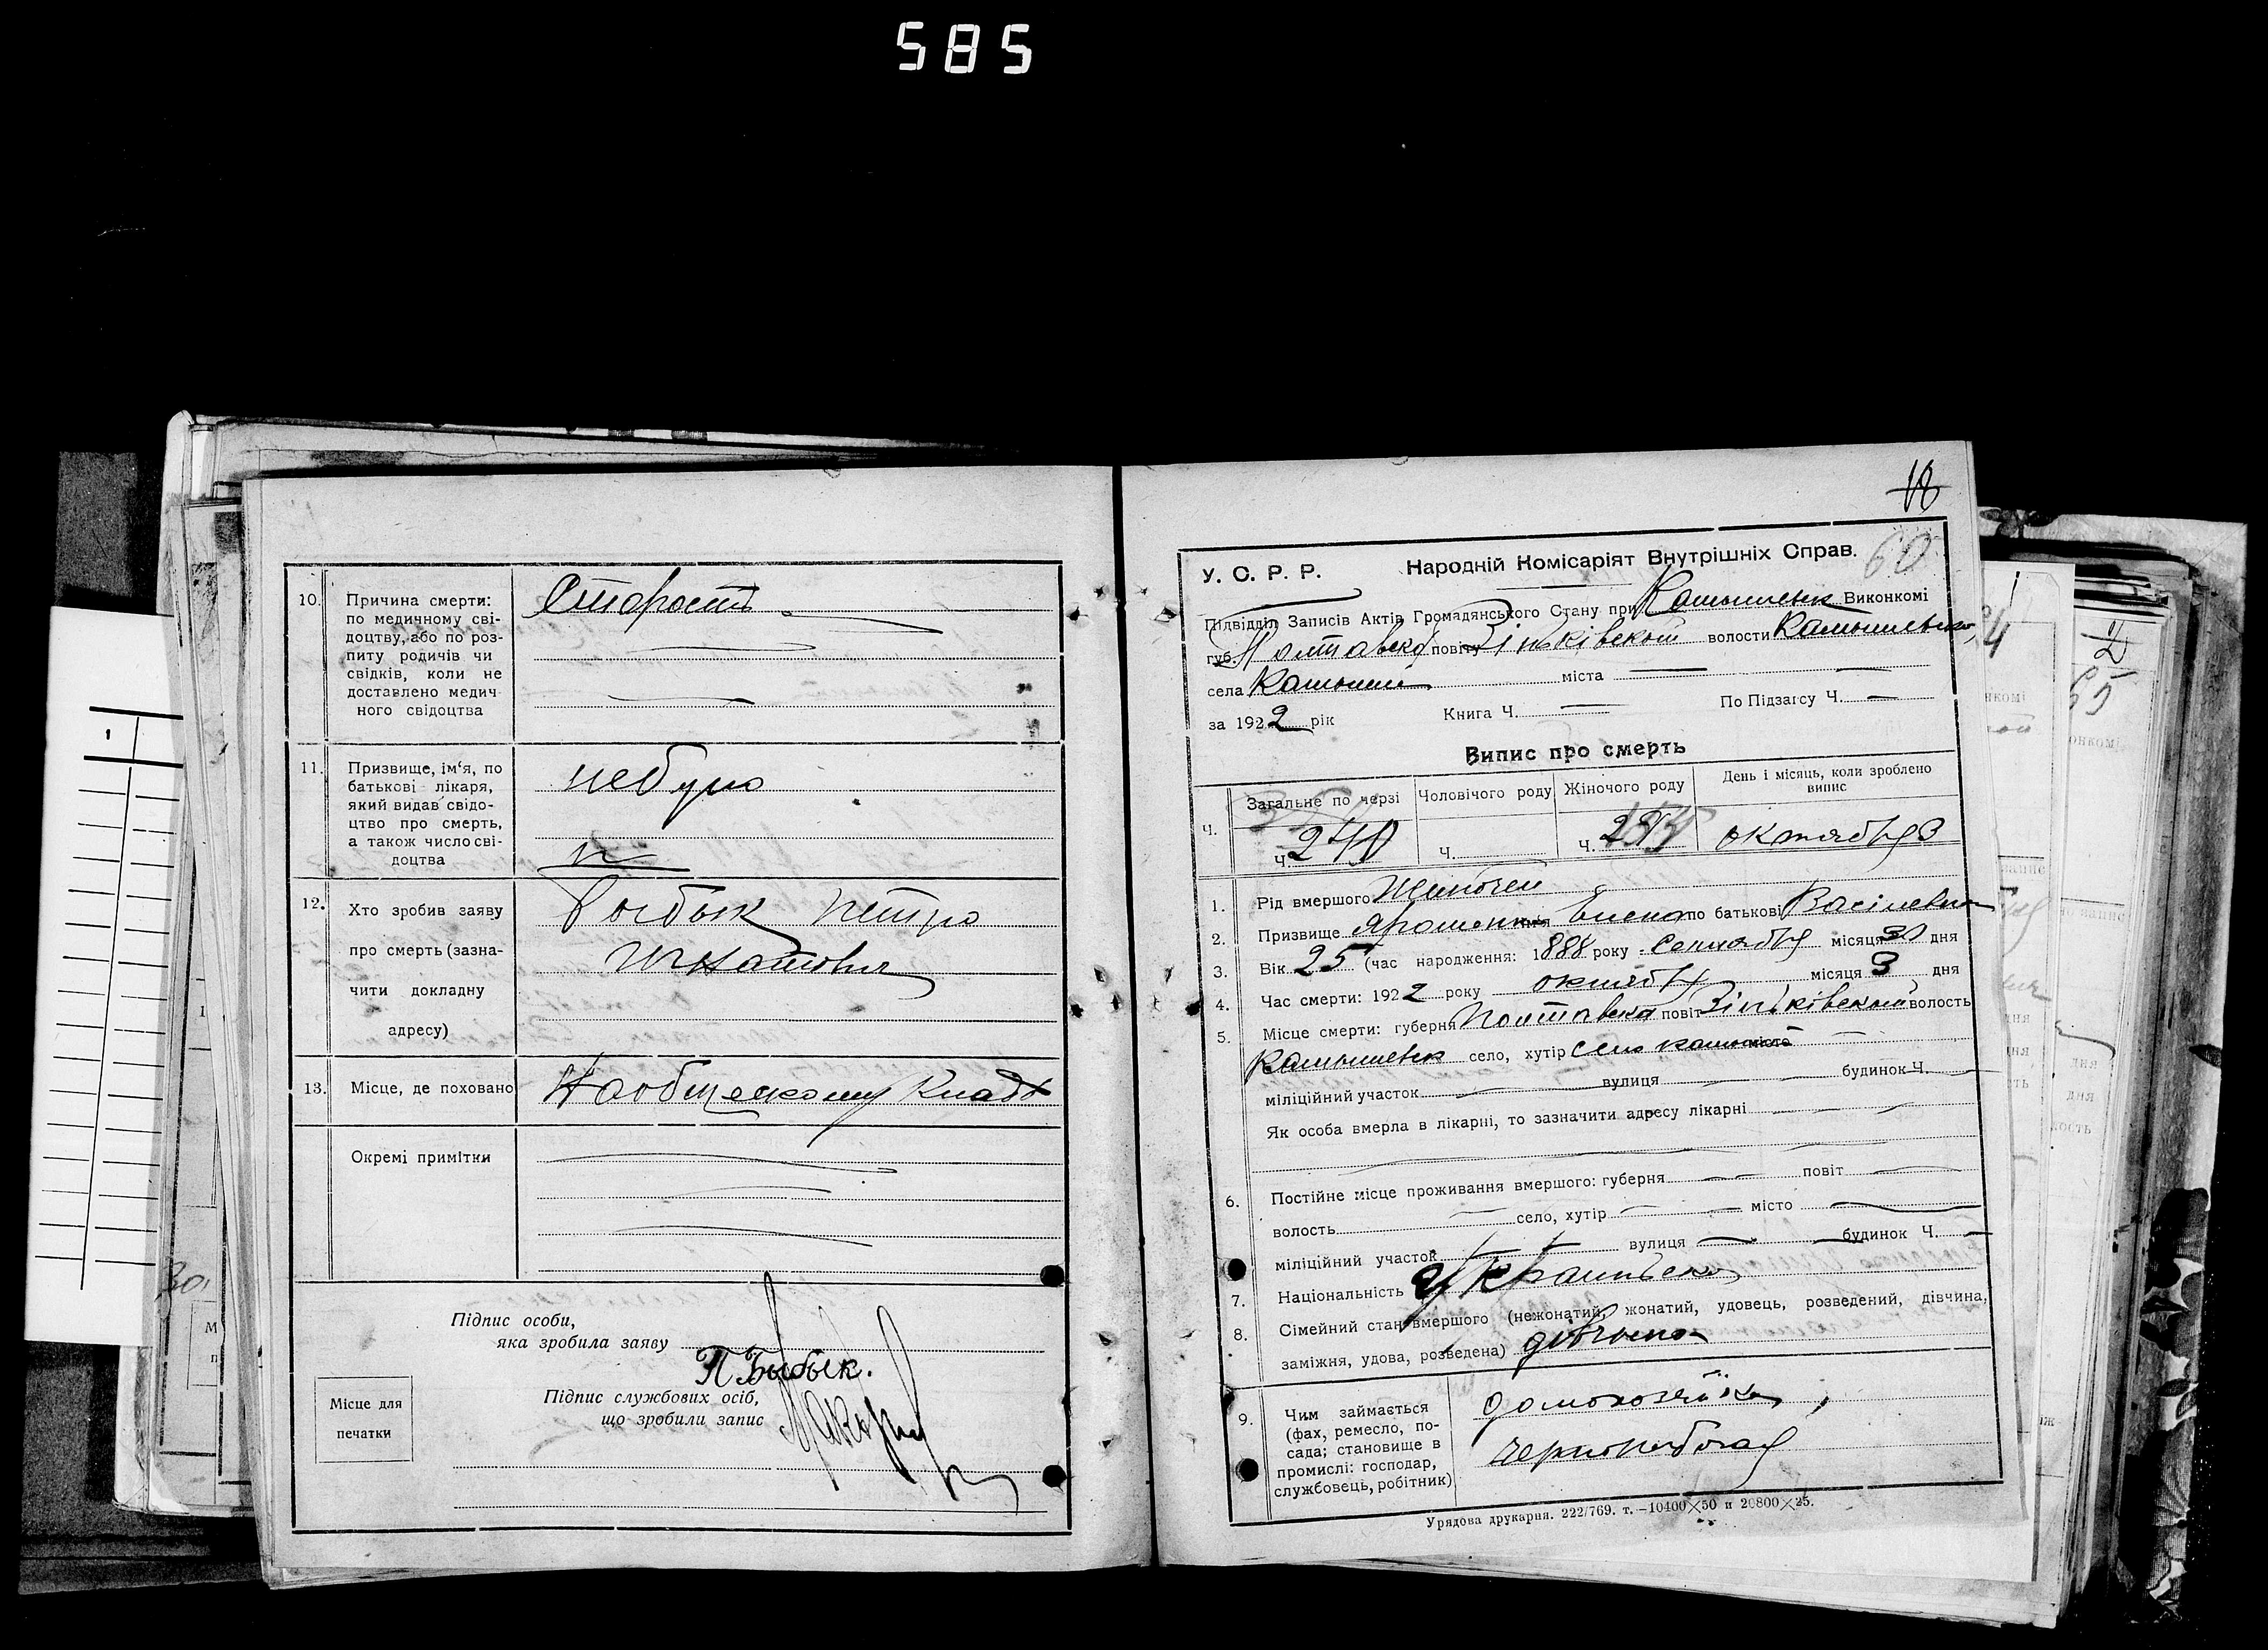 585
10. Причина смерти: Старость
по медичному сві-
доцтву, або по роз-
питу родичів чи
свідків, коли не
доставлено медич
ного свідоцтва
11. Призвище, ім'я, по небуло
батькові лікаря,
який видав свідо-
цтво про смерть,
а також число сві-
доцтва
12. Хто зробив заяву Бибык Петро
про смерть (зазна- Игнатовіч
чити докладну
адресу)
13. Місце, де поховано На общескому Кладб
Окремі примітки
Підпис особи,
яка зробила заяву
П Бибык.
Підпис службових осіб,
що зробили запис
Місце для
печатки
18
60
У. С. Р. Р. Народній Комісаріят Внутрішніх Справ.
Підвідділ Записів Актів Громадянського Стану при Камышенск Виконкомі
губ. Полтавско повіту Зіньківской волости Камышенско
села Камыши міста
за 1922 рік Книга Ч. По Підзагсу Ч.
Випис про смерть
Загальне по черзі Чоловічого роду Жіночого роду День і місяць, коли зроблено
випис
Ч. Ч. 240 Ч. Ч. октября 3
1. Рід вмершого Жиночей
2. Призвище Ярошенко імя Елена по батькові Васілевна
3. Вік 25 (час народження: 1888 року Сентября місяця 30 дня
4. Час смерти: 1922 року октября місяця 3 дня
5. Місце смерти: губерня Полтавско повіт Зіньківской волость
Камышенск село, хутір село камыши місто
міліційний участок вулиця будинок Ч.
Як особа вмерла в лікарні, то зазначити адресу лікарні
6. Постійне місце проживання вмершого: губерня повіт
волость село, хутір місто
міліційний участок вулиця будинок Ч.
7. Національність Украіньско
8. Сімейний стан вмершого (нежонатий, жонатий, удовець, розведений, дівчина,
заміжня, удова, розведена) дівчына
9. Чим займається домохозяйка,
(фах, ремесло, по- чернорабочая
сада; становище в
промислі: господар,
службовець, робітник)
Урядова друкарня. 222/769. т.—10400×50 и 20800×25.